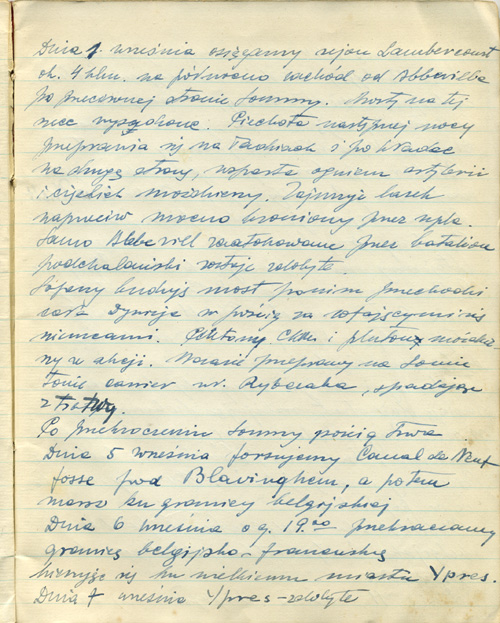 Dnia 1. września osiągamy rejon Lambercourt
ok. 4 klm. na północno wschód od Abbeville
po przeciwnej stronie Sommy. Mosty na tej
rzece wysadzone. Piechota następnej nocy
przeprawia się na łodziach i po kładce
na drugą stronę, wsparta ogniem artylerii
i ciężkich moździerzy. Zajmuje lasek
naprzeciw mocno broniony przez npla.
Samo Abbevill zaatakowane przez batalion
podhalański zostaje zdobyte.
Saperzy budują most po nim przechodzi
cała Dywizja w pościg za cofającymi się
niemcami. Plutony CKM. i pluton moździe
rzy w akcji. W czasie przeprawy na Somie
tonie carrier wr. Rybczaka, spadając
z tratwy.
Po przekroczeniu Sommy pościg trwa
Dnia 5 września forsujemy Canal de Neuf
fosse pod Blavinghem, a potem
marsz ku granicy belgijskiej
Dnia 6 września o g. 19.00 przekraczamy
granicę belgijsko-francuską
kierując się ku wielkiemu miastu Ypres.
Dnia 7 września Ypres-zdobyte